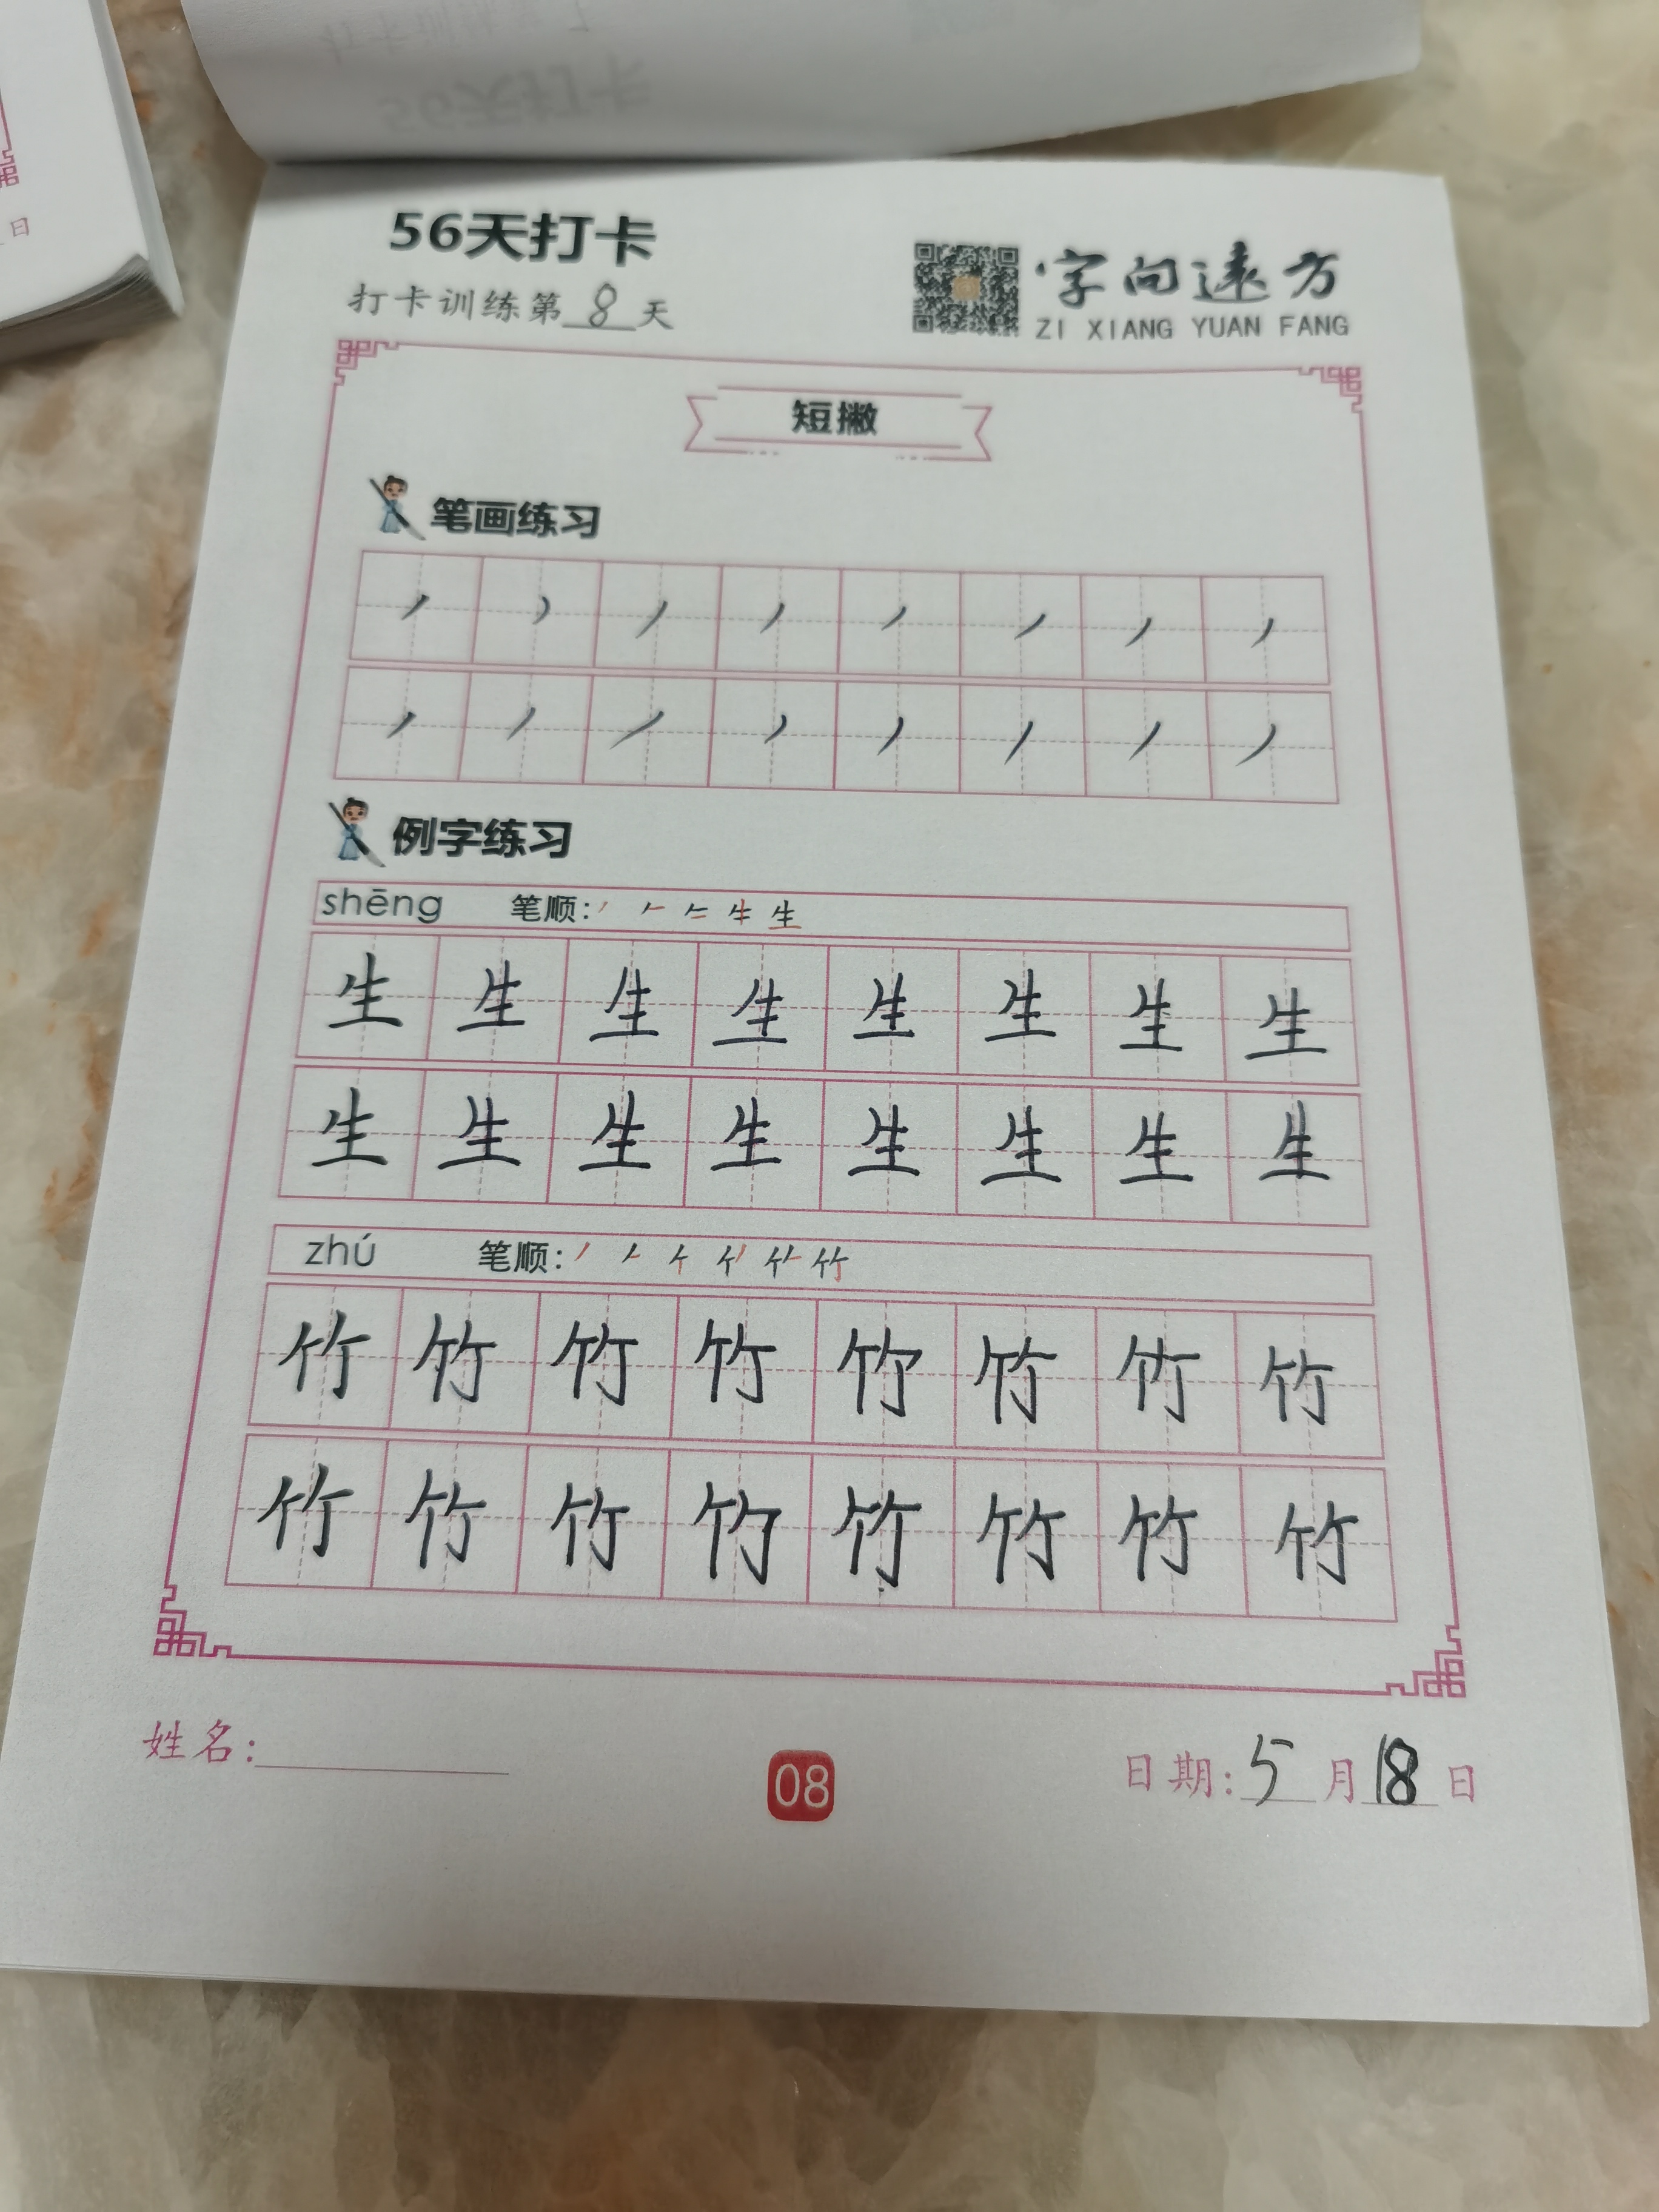 56天打卡
打卡训练第8天
字向远方
ZI XIANG YUAN FANG
短撇
笔画练习
丿丿丿丿丿丿丿丿
丿丿丿丿丿丿丿丿
例字练习
shēng 笔顺:
生生生生生生生生
生生生生生生生生
zhú 笔顺:
竹竹竹竹竹竹竹竹
竹竹竹竹竹竹竹竹
姓名:
08
日期:5月18日
日